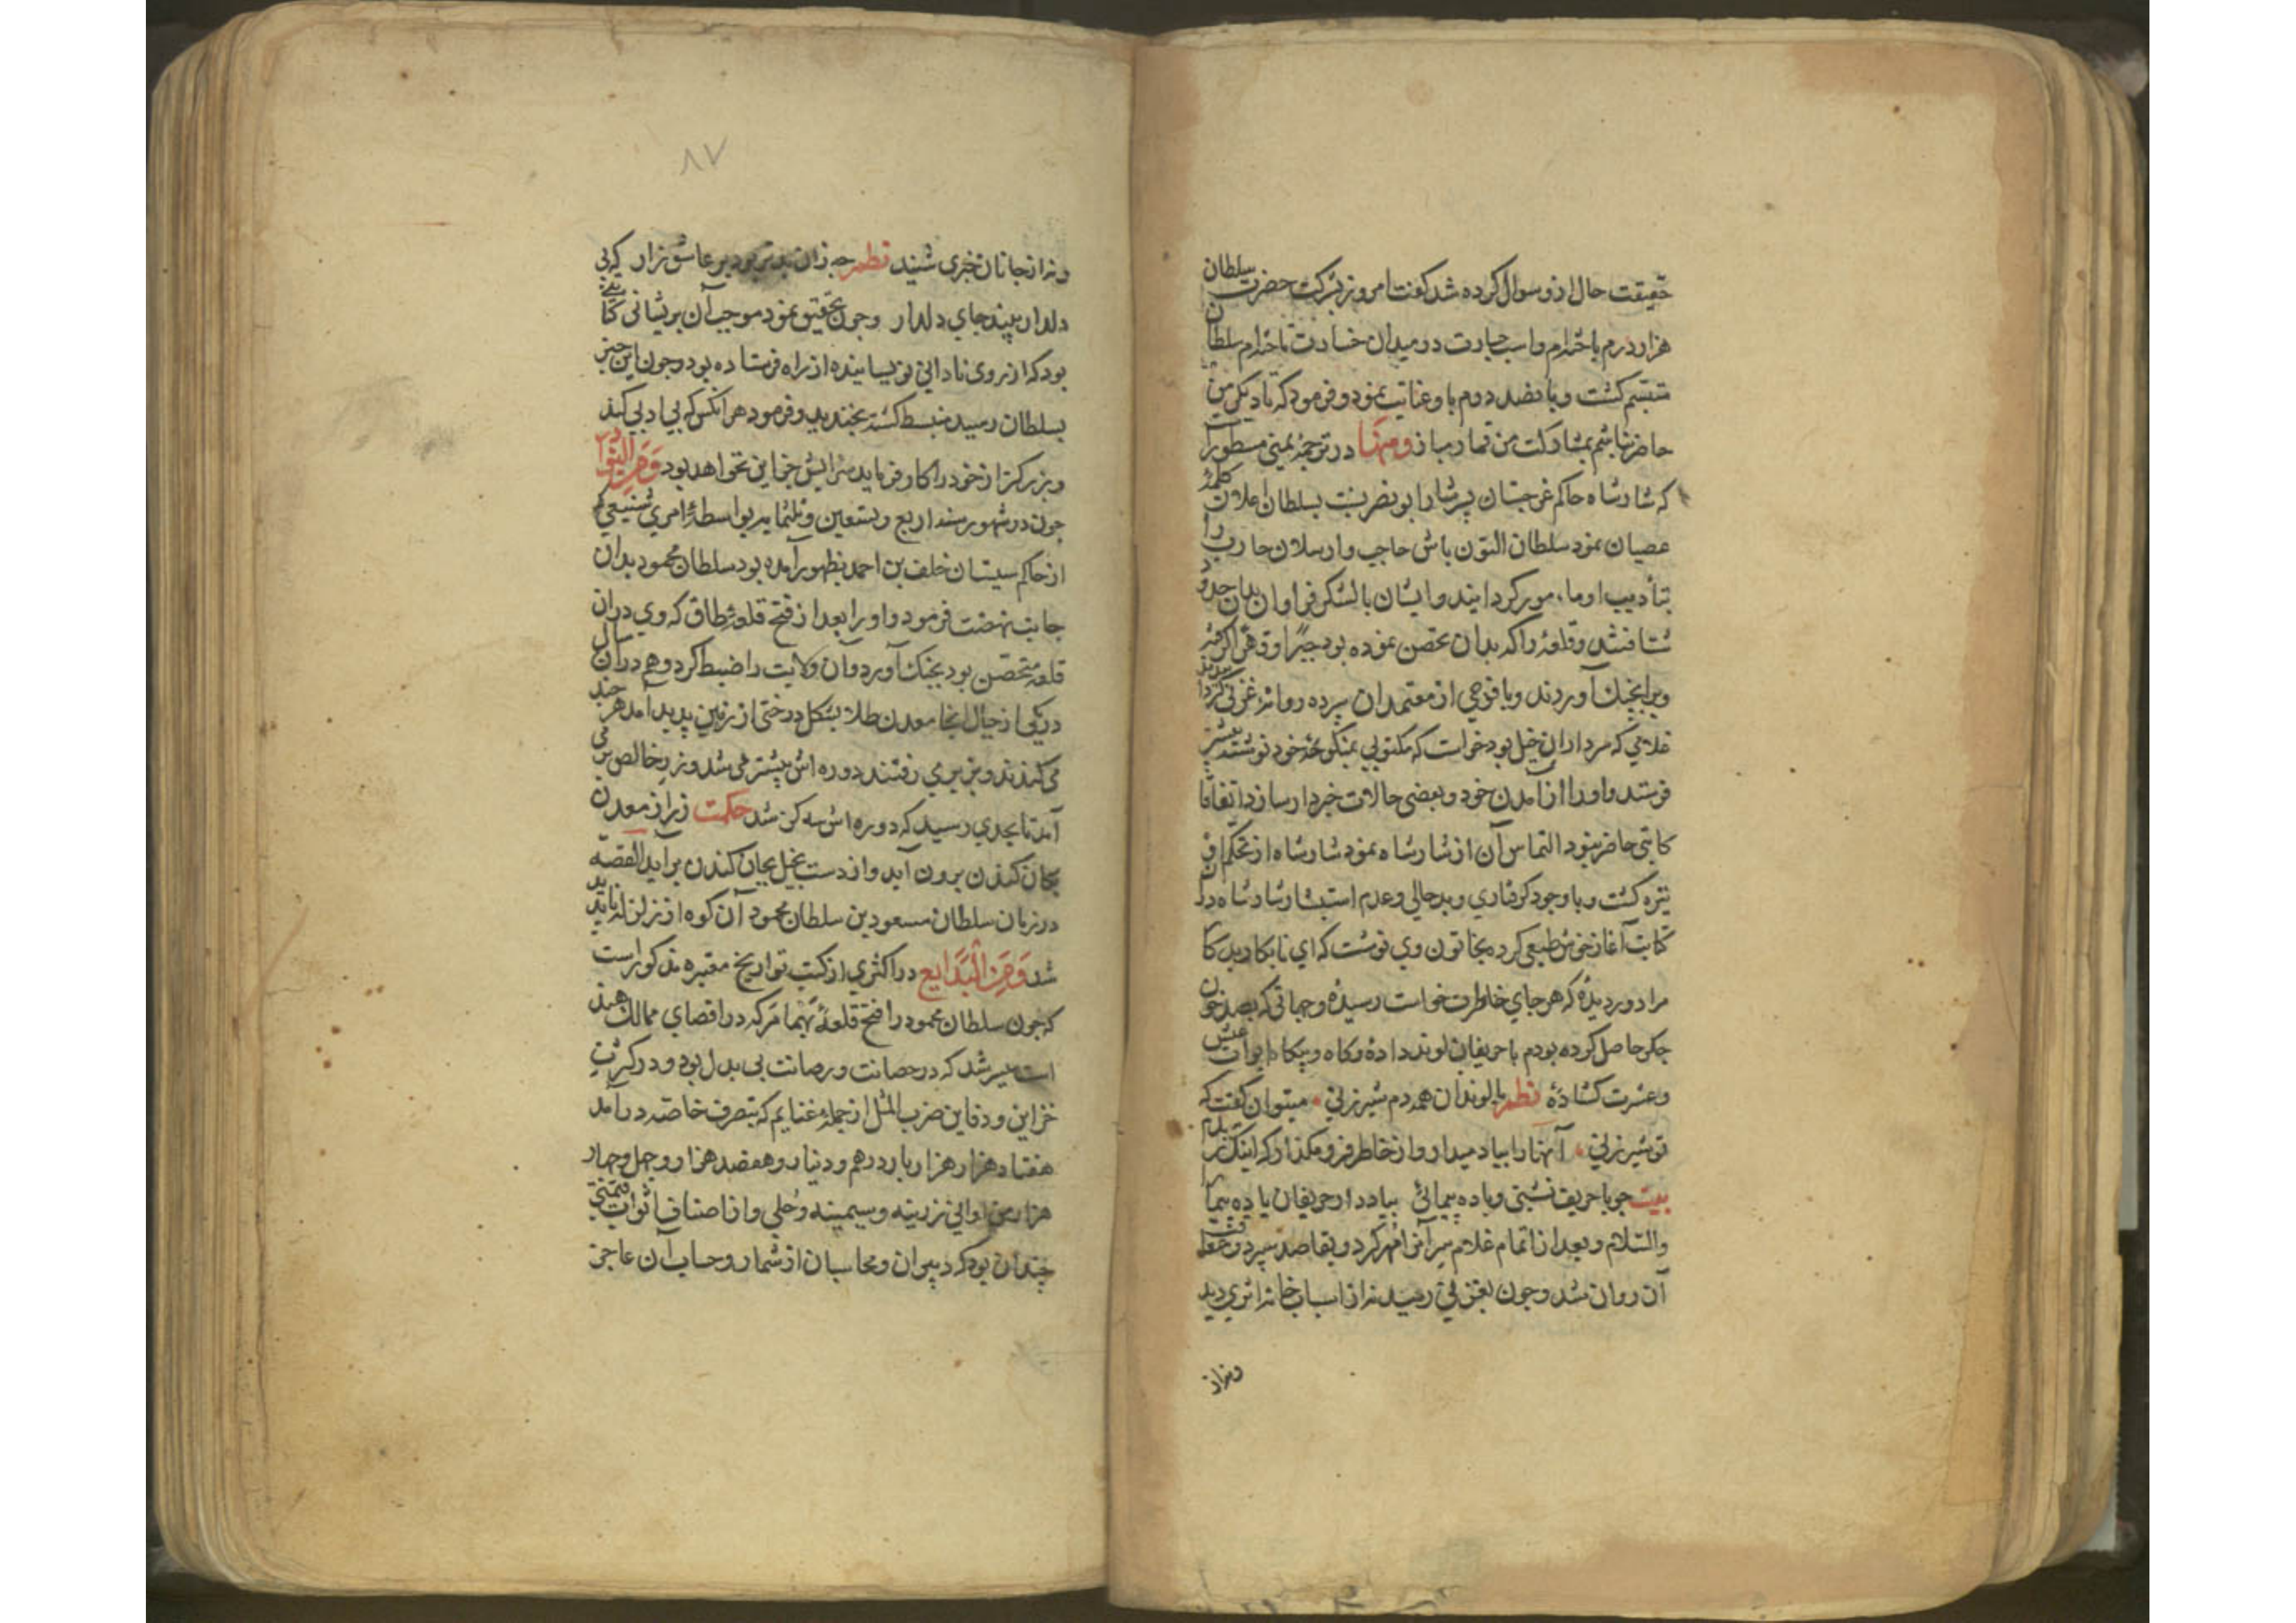 حقیقت حال ازو سوال کرده شد کفت امروز ببرکت حضرت سلطان
هزار درم باختم واسب جبارت در میدان خسارت تاختم سلطان
متبسم کشت و پانصد درم باو عنایت نمود و فرمود که تا دیکر من
حاضر نباشم بمشارکت من قمار مباز ومنها در ترجمهٔ یمینی مسطور
که شارشاه حاکم غرجستان پسر شار ابو نصر نسبت بسلطان اعلان کلمهٔ
عصیان نمود سلطان التون باش حاجب وارسلان جارب را
بتأدیب او مامور کردانیدند وایشان بالشکر فراوان بدان حدود
شتافتند و قلعهٔ را که بدان تحصن نموده بود جبرًا وقهرًا کرفته
ویرا بچنک آوردند وبا فوجی از معتمدان سپرده روانهٔ غزنی کردانیدند
غلامی که سردار ان خیل بود خواست که مکتوبی بمنکوحهٔ خود نوشته پیشتر
فرستد واورا از آمدن خود و بعضی حالات خبردار سازد اتفاقا
کاتبی حاضر نبود التماس آن از شارشاه نمود شارشاه از تحکم او
تیره کشت وبا وجود کرفتاری وبدحالی وعدم استبشار شارشاه در ان
کتابت آغاز خوش طبعی کرد بخاتون وی نوشت که ای نابکار بدکار
مرا دور دیدهٔ که هر جای خاطرت خواست رسیدهٔ وجهاتی که بصد خون
جکر حاصل کرده بودم با حریفان لوند دادهٔ وکاه وبیکاه ابواب عیش
وعشرت کشادهٔ نظم بالوندان همدم شیرزنی • میتوان کفت که
تو شیرزنی • آنها را بیاد میدار واز خاطر فرو مکذار که اینک رسیدم
بیت جو با حریف نشینی وباده پیمائی بیاد دار حریفان باده پیما را
والسلام وبعد از اتمام غلام سر آنرا مهر کرد و بقاصد سپرد وعقب
آن روان شد وجون بغزنی رسید نه از اسباب خانه اثری دید
ونه از
۸۷
ونه از جانان خبری شنید نظم جه زان بدتر بود بر عاشق زار که بی
دلدار بیند جای دلدار وجون تحقیق نمود موجب آن پریشانی کتابتی
بود که از روی نادانی نویسانیده از راه فرستاده بود وجون این خبر
بسلطان رسید منبسط کشته بخندید وفرمود هر انکس که بی ادبی کند
وبزرکتر از خود را کار فرماید سزایش جز این نخواهد بود ومن النوادر
جون در شهور سنه اربع وتسعین وثلثمایه بواسطهٔ امری شنیعی که
از حاکم سیستان خلف بن احمد بظهور آمده بود سلطان محمود بدان
جانب نهضت فرمود واورا بعد از فتح قلعهٔ طاق که وی در ان
قلعه متحصن بود بچنک آورد وآن ولایت را ضبط کرد وهم در ان سال
در یکی از جبال انجا معدن طلا بشکل درختی از زمین پدید آمد هر چند
می کندند وبزیر می رفتند دوره اش بیشتر می شد وزر خالص بر می
آمد تا بحدی رسید که دوره اش سه کز شد حکمت زر از معدن
بجان کندن برون آید واز دست بخیل بجان کندن برآید القصه
در زمان سلطان مسعود بن سلطان محمود آن کوه از زلزله ناپدید
شد ومن البدایع در اکثری از کتب تواریخ معتبره مذکور است
که جون سلطان محمود را فتح قلعهٔ بهما مر که در اقصای ممالک هند
است میسر شد که در حصانت ورصانت بی بدل بود ودر کثرت
خزاین ودفاین ضرب المثل از جمله غنایم که بتصرف خاصه در آمد
هفتاد هزار هزار بار درهم ودینار وهفصد هزار وجهل وجهار
هزار من اوانی زرینه وسیمینه وحلی واز اصناف اثواب قیمتی
چندان بود که دبیران ومحاسبان از شمار وحساب آن عاجز